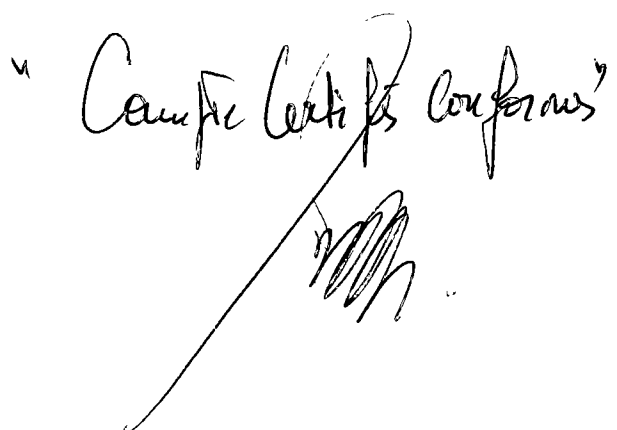 "Comptes Certifiés conformes"